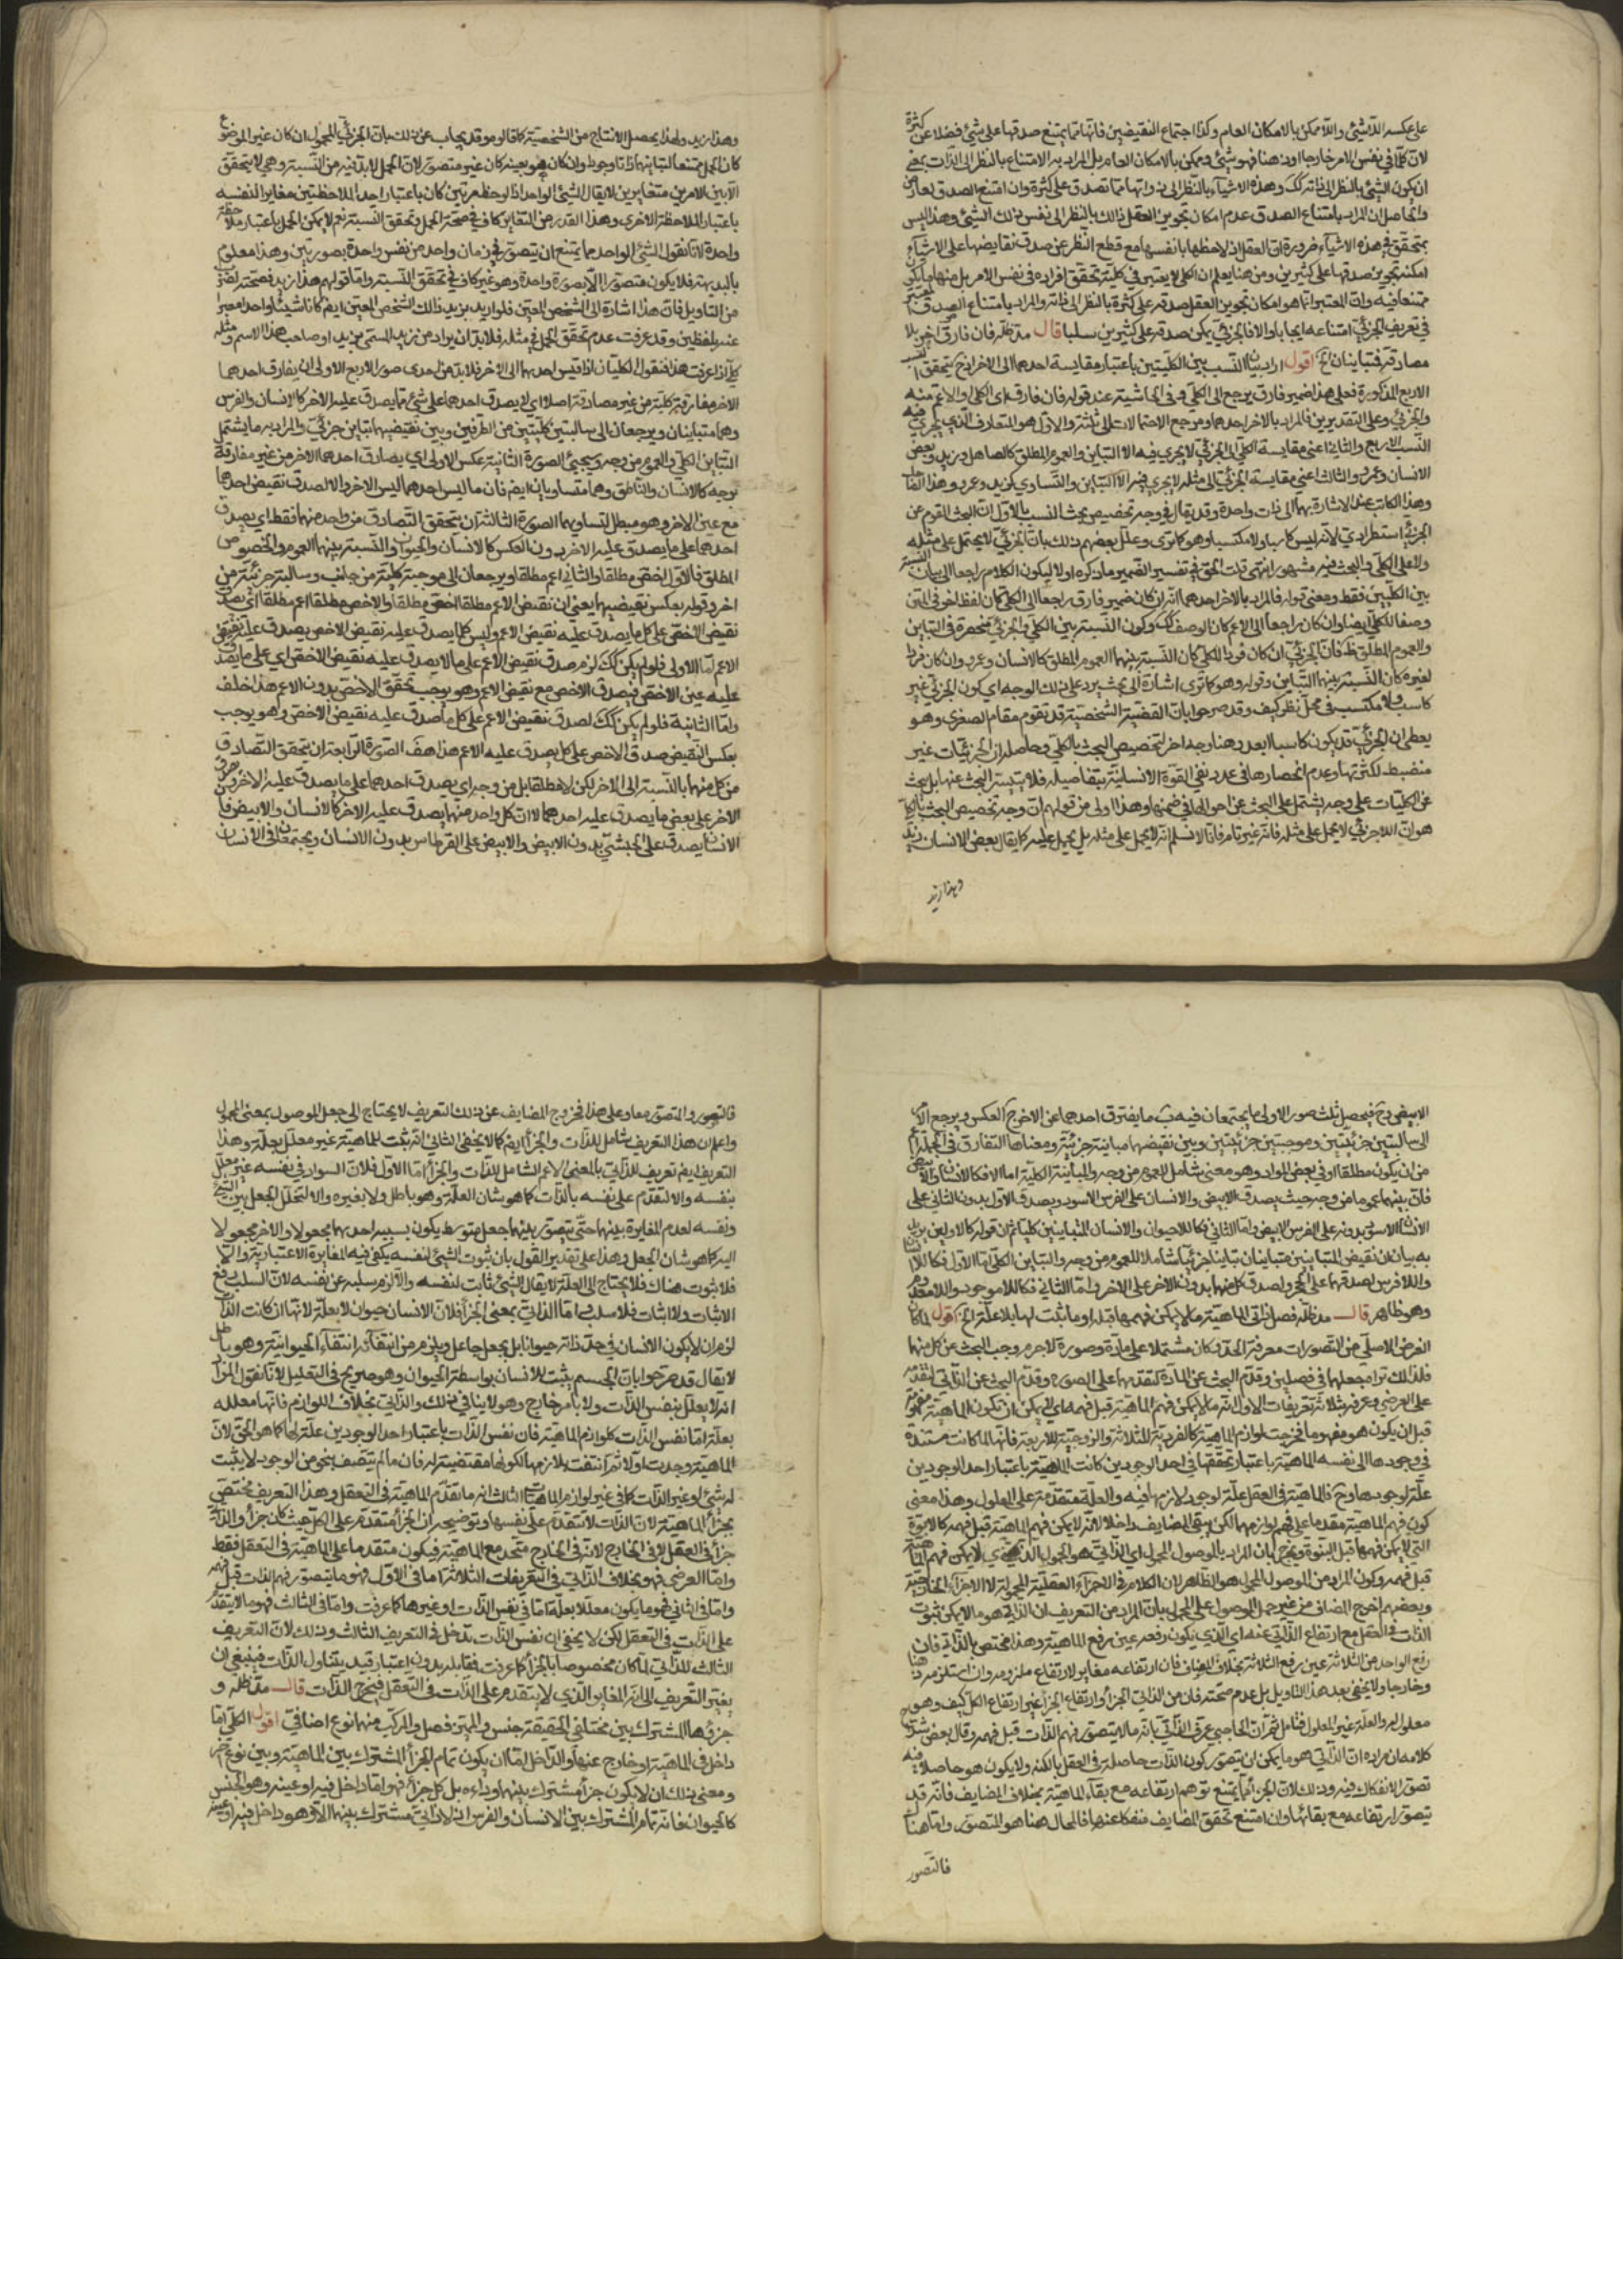 على عكسه اللاشئ واللاممكن بالامكان العام وكذا اجتماع النقيضين فانها مما يمتنع صدقها على شئ فضلا عن كثرة
لان كلما في نفس الامر خارجا او ذهنا فهو شئ وممكن بالامكان العام بل المراد به الامتناع بالنظر الى الذات بمعنى
ان يكون الشئ بالنظر الى ذاته كك وهذه الاشياء بالنظر الى ذواتها مما تصدق على كثرة وان امتنع الصدق لعارض
والحاصل ان المراد بامتناع الصدق عدم امكان تجويز العقل ذلك بالنظر الى نفس ذلك الشئ وهذا ليس
بمتحقق في هذه الاشياء ضرورة ان العقل اذ لاحظها بانفسها مع قطع النظر عن صدق نقايضها على الاشياء
امكنه تجويز صدقها على كثيرين ومن هنا يعلم ان الكلي لا يعتبر في كليته تحقق افراده في نفس الامر بل منها ما يكون
ممتنعا فيه وان المعتبر انما هو امكان تجويز العقل صدقه على كثرة بالنظر الى ذاته والمراد بامتناع الصدق المعتبر
في تعريف الجزئي امتناعه ايجابا والا فالجزئي يمكن صدقه على كثيرين سلبا قال مد ظله فان فارق اخر بلا
مصادقة فتباينان الخ اقول اراد بيان النسب بين الكليتين باعتبار مقايسة احدهما الى الاخر اذ ح يتحقق النسب
الاربع المذكورة فعلى هذا ضمير فارق يرجع الى الكلي في الحاشية عند قوله فان فارق اي الكلي والاعم منه
والجزئي وعلى التقديرين فالمراد بالاخر احدهما ومرجع الاحتمالات الى ثلثة والاول هو المتعارف الذي يجري فيه
النسب الاربع والثاني اعني مقايسة الكلي الى الجزئي لا يجري فيه الا التباين والعموم المطلق كالصاهل وزيد وبعض
الانسان وعمرو والثالث اعني مقايسة الجزئي الى مثله لا يجري فيه الا التباين والتساوي كزيد وعمرو وهذا الضاحك
وهذا الكاتب عند الاشارة بهما الى ذات واحدة وقد يقال في وجه تخصيص بحث النسب بالاول ان البحث القوم عن
الجزئي استطرادي لانه ليس كاسبا ولا مكتسبا وهو كما ترى وعلل بعضهم ذلك بان الجزئي لا يحتمل على مثله
ولا على الكلي والبحث فيه مشهور انتهى قلت الحق في تفسير الضمير ما ذكره اولا ليكون الكلام راجعا الى بيان النسبة
بين الكليين فقط ومعنى قوله فالمراد بالاخر احدهما انه ان كان ضمير فارق راجعا الى الكلي كان لفظ اخر في المتن
وصفا للكلي ايضا وان كان راجعا الى الاعم كان الوصف كك وكون النسبة بين الكلي والجزئي منحصرة في التباين
والعموم المطلق ظ فان الجزئي ان كان فردا للكلي كان النسبة بينهما العموم المطلق كالانسان وعمرو وان كان فردا
لغيره كان النسبة بينهما التباين وقوله وهو كما ترى اشارة الى بحث يرد على ذلك الوجه اي كون الجزئي غير
كاسب ولا مكتسب في محل نظر كيف وقد صرحوا بان القضية الشخصية قد تقوم مقام الصغرى وهو
يعطي ان الجزئي قد يكون كاسبا ابعد وهنا وجه اخر لتخصيص البحث بالكلي وحاصله ان الجزئيات غير
منضبط لكثرتها وعدم انحصارها في عدد تفي القوة الانسانية بتفاصيله فلا يتيسر البحث عنها بل يبحث
عن الكليات على وجه يشتمل على البحث عن احوالها في ضمنها وهذا اولى من قولهم ان وجه تخصيص البحث بالكلي
هو ان اللاجزئي لا يحمل على مثله فانه غير تام فانا لا نسلم انه لا يحمل على مثله بل يحمل عليه كما يقال بعض الانسان زيد
وهذا زيد
وهذا زيد ولهذا يحصل الانتاج من الشخصية كما قالوه وقد يجاب عن ذلك بان الجزئي المحمول ان كان غير الموضوع
كان الحمل ممتنعا لتباينهما ذاتا ووجودا ولان كان هو بعينه كان غير متصور لان الحمل لا بد فيه من النسبة وهي لا تتحقق
الا بين الامرين متغايرين لا يقال الشئ الواحد اذا لوحظ مرتين كان باعتبار احد الملاحظتين مغايرا لنفسه
باعتبار الملاحظة الاخرى وهذا القدر من التغاير كاف في صحة الحمل وتحقق النسبة نعم لا يمكن الحمل باعتبار ملاحظة
واحدة لانا نقول الشئ الواحد مما يمتنع ان يتصور في زمان واحد من نفس واحدة بصورتين وهذا معلوم
بالبديهة فلا يكون متصورا الا بصورة واحدة وهو غير كاف في تحقق النسبة واما قولهم هذا زيد فصحته لضرب
من التاويل فان هذا اشارة الى الشخص المعين فلو اريد بزيد ذلك الشخص المعين ايضا كانا شيئا واحدا معبرا
عنه بلفظين وقد عرفت عدم تحقق الحمل في مثله فلا بد ان يراد من زيد المسمى بزيد او صاحب هذا الاسم ومثله
كلي اذا عرفت هذا فنقول الكليان اذا قيس احدهما الى الاخر فلا بد من احدى صور الاربع الاولى ان يفارق احدهما
الاخر مفارقة كلية من غير مصادقة اصلا اي لا يصدق احدهما على شئ مما يصدق عليه الاخر كالانسان والفرس
وهما متباينان ويرجعان الى سالبتين كليتين من الطرفين وبين نقيضيهما تباين جزئي والمراد به ما يشتمل
التباين الكلي والعموم من وجه وسيجئ الصورة الثانية عكس الاولى اي يصادق احدهما الاخر من غير مفارقة
بوجه كالانسان والناطق وهما متساويان ايضا فان ما ليس احدهما ليس الاخر والا لصدق نقيض احدهما
مع عين الاخر وهو مبطل لتساويهما الصورة الثالثة ان يتحقق التصادق من واحد منهما فقط اي يصدق
احدهما على ما يصدق عليه الاخر بدون العكس كالانسان والحيوان والنسبة بينهما العموم والخصوص
المطلق فالاول اخص مطلقا والثاني اعم مطلقا ويرجعان الى موجبة كلية من جانب وسالبة جزئية من
اخر وقوله بعكس نقيضيهما يعني ان نقيض الاعم مطلقا اخص مطلقا والاخص مطلقا اعم مطلقا اي يصدق
نقيض الاخص على كل ما يصدق عليه نقيض الاعم وليس كلما يصدق عليه نقيض الاخص يصدق عليه نقيض
الاعم اما الاولى فلو لم يكن كك لزم صدق نقيض الاعم على ما لا يصدق عليه نقيض الاخص اي على ما يصدق
عليه عين الاخص فيصدق الاخص مع نقيض الاعم وهو يوجب تحقق الاخص بدون الاعم هذا خلف
واما الثانية فلو لم يكن كك لصدق نقيض الاعم على كل ما صدق عليه نقيض الاخص وهو يوجب
بعكس النقيض صدق الاخص على كل يصدق عليه الاعم هذا هف الصورة الرابعة ان يتحقق التصادق
من كل منهما بالنسبة الى الاخر لكن لا مطلقا بل من وجه اي يصدق احدهما على ما يصدق عليه الاخر ويصدق
الاخر على بعض ما يصدق عليه احدهما لا ان كل واحد منهما يصدق عليه الاخر كالانسان والابيض فان
الانسان يصدق على الحبشي بدون الابيض والابيض على القرطاس بدون الانسان ويجتمعان في الانسان
الابيض وح فيحصل ثلث صور الاولى ما يجتمعان فيه ب ما يفترق احدهما عن الاخر ج العكس ويرجع الامر
الى سالبتين جزئيتين وموجبتين جزئيتين وبين نقيضهما مباينة جزئية ومعناها التفارق في الجملة اعم
من ان يكون مطلقا او في بعض المواد وهو معنى شامل للعموم من وجه والمباينة الكلية اما الاول فكالانسان والابيض
فان بينهما عموما من وجه حيث يصدق الابيض والانسان على الفرس الاسود ويصدق الاول بدون الثاني على
الانسان الاسود بدونه على الفرس الابيض واما الثاني فكاللاحيوان والانسان المتباينين كليا ثم ان قوله كالاولين يريد
به بيان لان نقيض المتباينين متباينان تباينا جزئيا شاملا للعموم من وجه والتباين الكلي اما الاول فكاللاانسان
واللافرس لصدقهما على الحجر ولصدق كل منهما بدون الاخر على الاخر واما الثاني فكاللاموجود واللامعدوم
وهو ظاهر قال مد ظله فصل ذاتي الماهية ما لا يمكن فهمها قبله او ما يثبت لها بلا علة الخ اقول لما كان
الغرض الاصلي من التصورات معرفة الحد وكان مشتملا على مادة وصورة لا جرم وجب البحث عن كل منهما
فلذلك تراه جعلها في فصلين وقدم البحث عن المادة لتقدمها على الصورة وقدم البحث عن الذاتي لتقدمه
على العرضي وعرفه بثلاثة تعريفات الاول انه ما لا يمكن فهم الماهية قبل فهمه اي لا يمكن ان تكون الماهية مفهومة
قبل ان يكون هو مفهوما فخرجت لوازم الماهية كالفردية للثلاثة والزوجية للاربعة فانها لما كانت مستندة
في وجودها الى نفسه الماهية باعتبار تحققها في احد الوجودين كانت الماهية باعتبار احد الوجودين
علة لوجودها وح فالماهية في العقل علة لوجود لازمها فيه والعلة متقدمة على المعلول وهذا معنى
كون فهم الماهية مقدما على فهم لوازمها لكن يبقى المضايف داخلا لانه لا يمكن فهم الماهية قبل فهمه كالابوة
التي لا يمكن فهمها قبل البنوة ويخرج بان المراد بالموصول المحمول اي الذاتي هو المحمول الذي لا يمكن فهم الماهية
قبل فهمه وكون المراد من الموصول المحمول هو الظاهر لان الكلام في الاجزاء العقلية المحمولة لا الاجزاء الخارجية
وبعضهم اخرج المضاف من غير حمل الموصول على المحمول بان المراد من التعريف ان الذاتي هو ما لا يمكن ثبوت
الذات في العقل مع ارتفاع الذاتي عنه اي الذي يكون رفعه عين رفع الماهية وهذا مختص بالذاتي فان
رفع الواحد من الثلاثة عين رفع الثلاثة بخلاف المضاف فان ارتفاعه مغاير لارتفاع ملزومه وان استلزمه ذهنا
وخارجا ولا يخفى بعد هذا التاويل بل عدم صحته فان من الذاتي الجزء وارتفاع الجزء غير ارتفاع الكل كيف وهو
معلول له والعلة غير المعلول فتامل ثم ان الحاجبي عرف الذاتي بانه ما لا يتصور فهم الذات قبل فهمه وقال بعض شراح
كلامه ان مراده ان الذاتي هو ما يمكن ان يتصور كون الذات حاصلة في العقل بالكنه ولا يكون هو حاصلا فيه
تصور الانفكاك فيه وذلك لان الجزء مما يمتنع توهم ارتفاعه مع بقاء الماهية بخلاف المضايف فانه قد
يتصور ارتفاعه مع بقائها وان امتنع تحقق المضايف منفكا عنها فالمحال هنا هو المتصور واما هنا
فالتصور
فالتصور والمتصور معا وعلى هذا فخروج المضايف عن ذلك التعريف لا يحتاج الى جعل الموصول بمعنى المحمول
واعلم ان هذا التعريف شامل للذات والجزء ايضا كما لا يخفى الثاني انه يثبت للماهية غير معلل بعلة وهذا
التعريف ايضا تعريف للذاتي بالمعنى الاعم الشامل للذات والجزء اما الاول فلان السواد في نفسه غير معلل
بنفسه والا لتقدم على نفسه بالذات كما هو شان العلة وهو باطل ولا بغيره والا لتخلل الجعل بين الشئ
ونفسه لعدم المغايرة بينهما حتى يتصور بينهما جعل متوسط يكون بسببه احدهما مجعولا والاخر مجعولا
اليه كما هو شان الجعل وهذا على تقدير القول بان ثبوت الشئ لنفسه يكفي فيه المغايرة الاعتبارية والا
فلا ثبوت هناك فلا يحتاج الى العلة لا يقال الشئ ثابت لنفسه والا لزم سلبه عن نفسه لان السلب رفع
الاثبات ولا اثبات فلا سلب اما الذاتي بمعنى الجزء فلان الانسان حيوان لا بعلة لانها ان كانت الذات
لزم ان لا يكون الانسان في حد ذاته حيوانا بل بجعل جاعل ويلزم من انتفائه انتفاء الحيوانية وهو باطل
لا يقال قد صرحوا بان الجسم يثبت للانسان بواسطة الحيوان وهو صريح في التعليل لانا نقول المراد
انه لا يعلل بنفس الذات ولا بامر خارج وهو لا ينافي ذلك والذاتي بخلاف اللوازم فانها معللة
بعلة اما نفس الذات كلوازم الماهية فان نفس الذات باعتبار احد الوجودين علة لها كما هو الحق لان
الماهية وجدت اولا ثم انتفت بلازمها لكونها مقتضية له فان ما لم يتصف بنحو من الوجود لا يثبت
له شئ او غير الذات كما في غير لوازم الماهيات الثالث انه ما تقدم الماهية في التعقل وهذا التعريف مختص
بجزء الماهية لان الذات لا تتقدم على نفسها وتوضيحه ان الجزء متقدم على الكل حيث كان جزأ والذاتي
جزء في العقل لا في الخارج لانه في الخارج متحد مع الماهية فيكون متقدما على الماهية في التعقل فقط
واما العرضي فهو بخلاف الذاتي في التعريفات الثلاثة اما في الاول فهو ما يتصور فهم الذات قبل فهمه
واما في الثاني فهو ما يكون معللا بعلة اما في نفس الذات او غيرها كما عرفت واما في الثالث فهو ما لا يتقدم
على الذات في التعقل لكن لا يخفى ان نفس الذات تدخل في التعريف الثالث وذلك لان التعريف
الثالث للذاتي لما كان مخصوصا بالجزء كما عرفت فمقابله بدون اعتبار قيد يتناول الذات فينبغي ان
يغير التعريف الى انه المغاير الذي لا يتقدم على الذات في التعقل فيخرج الذات قال مد ظله و
جزءها المشترك بين مختلفي الحقيقة جنس والمميز فصل والمركب منهما نوع اضافي اقول الكلي اما
داخل في الماهية او خارج عنها والداخل اما ان يكون تمام الجزء المشترك بين الماهية وبين نوع اخر
ومعنى ذلك ان لا يكون جزء مشترك بينهما وراءه بل كل جزء فهو اما داخل فيه او عينه وهو الجنس
كالحيوان فانه تمام المشترك بين الانسان والفرس اذ لا ذاتي مشترك بينهما الا وهو داخل فيه او عينه